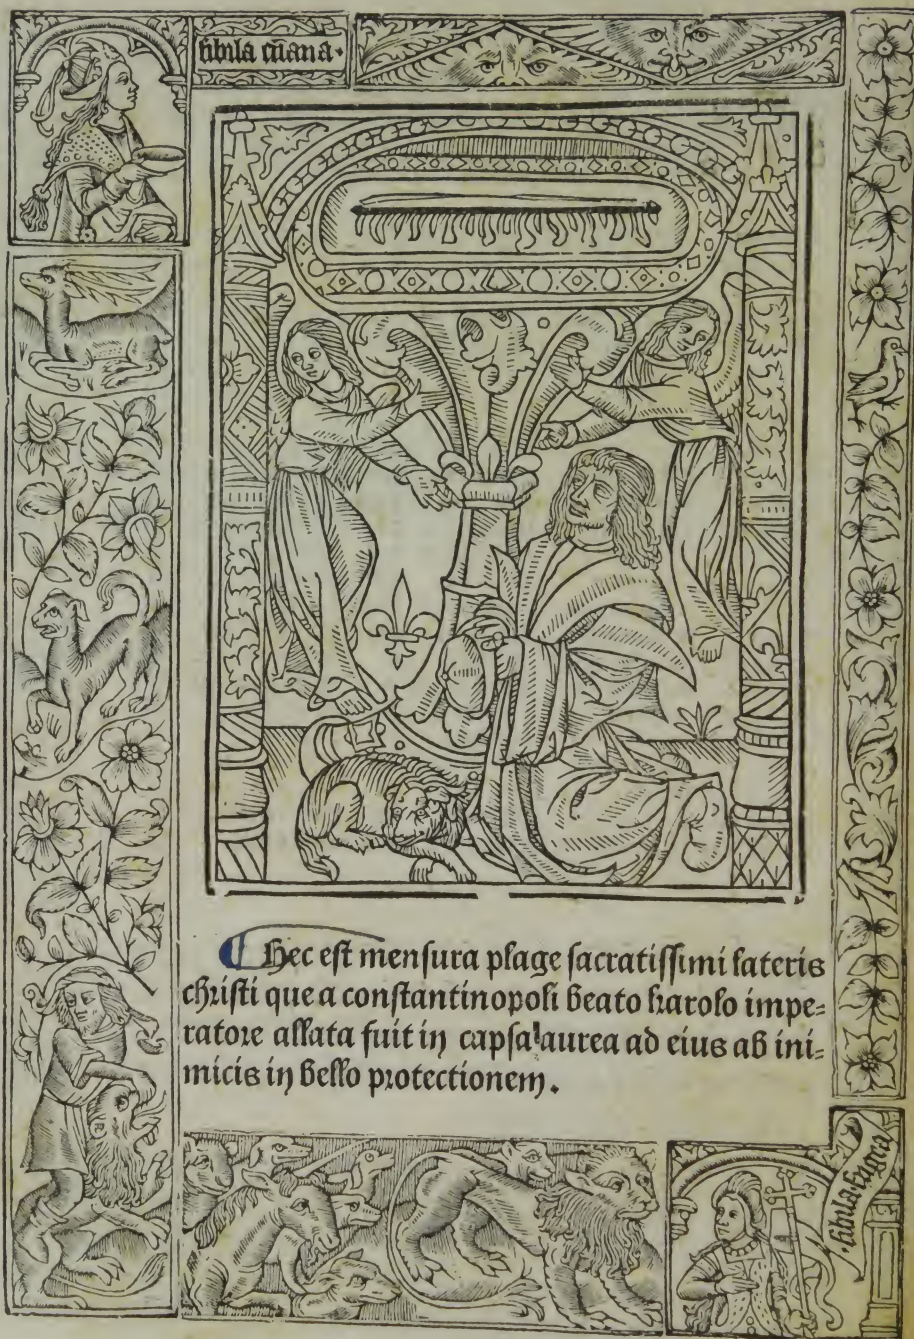 sibila cūiana.
Hec est mensura plage sacratissimi lateris
christi que a constantinopoli beato karolo impe=
ratore allata fuit in capsa aurea ad eius ab ini=
micis in bello protectionem.
sibila